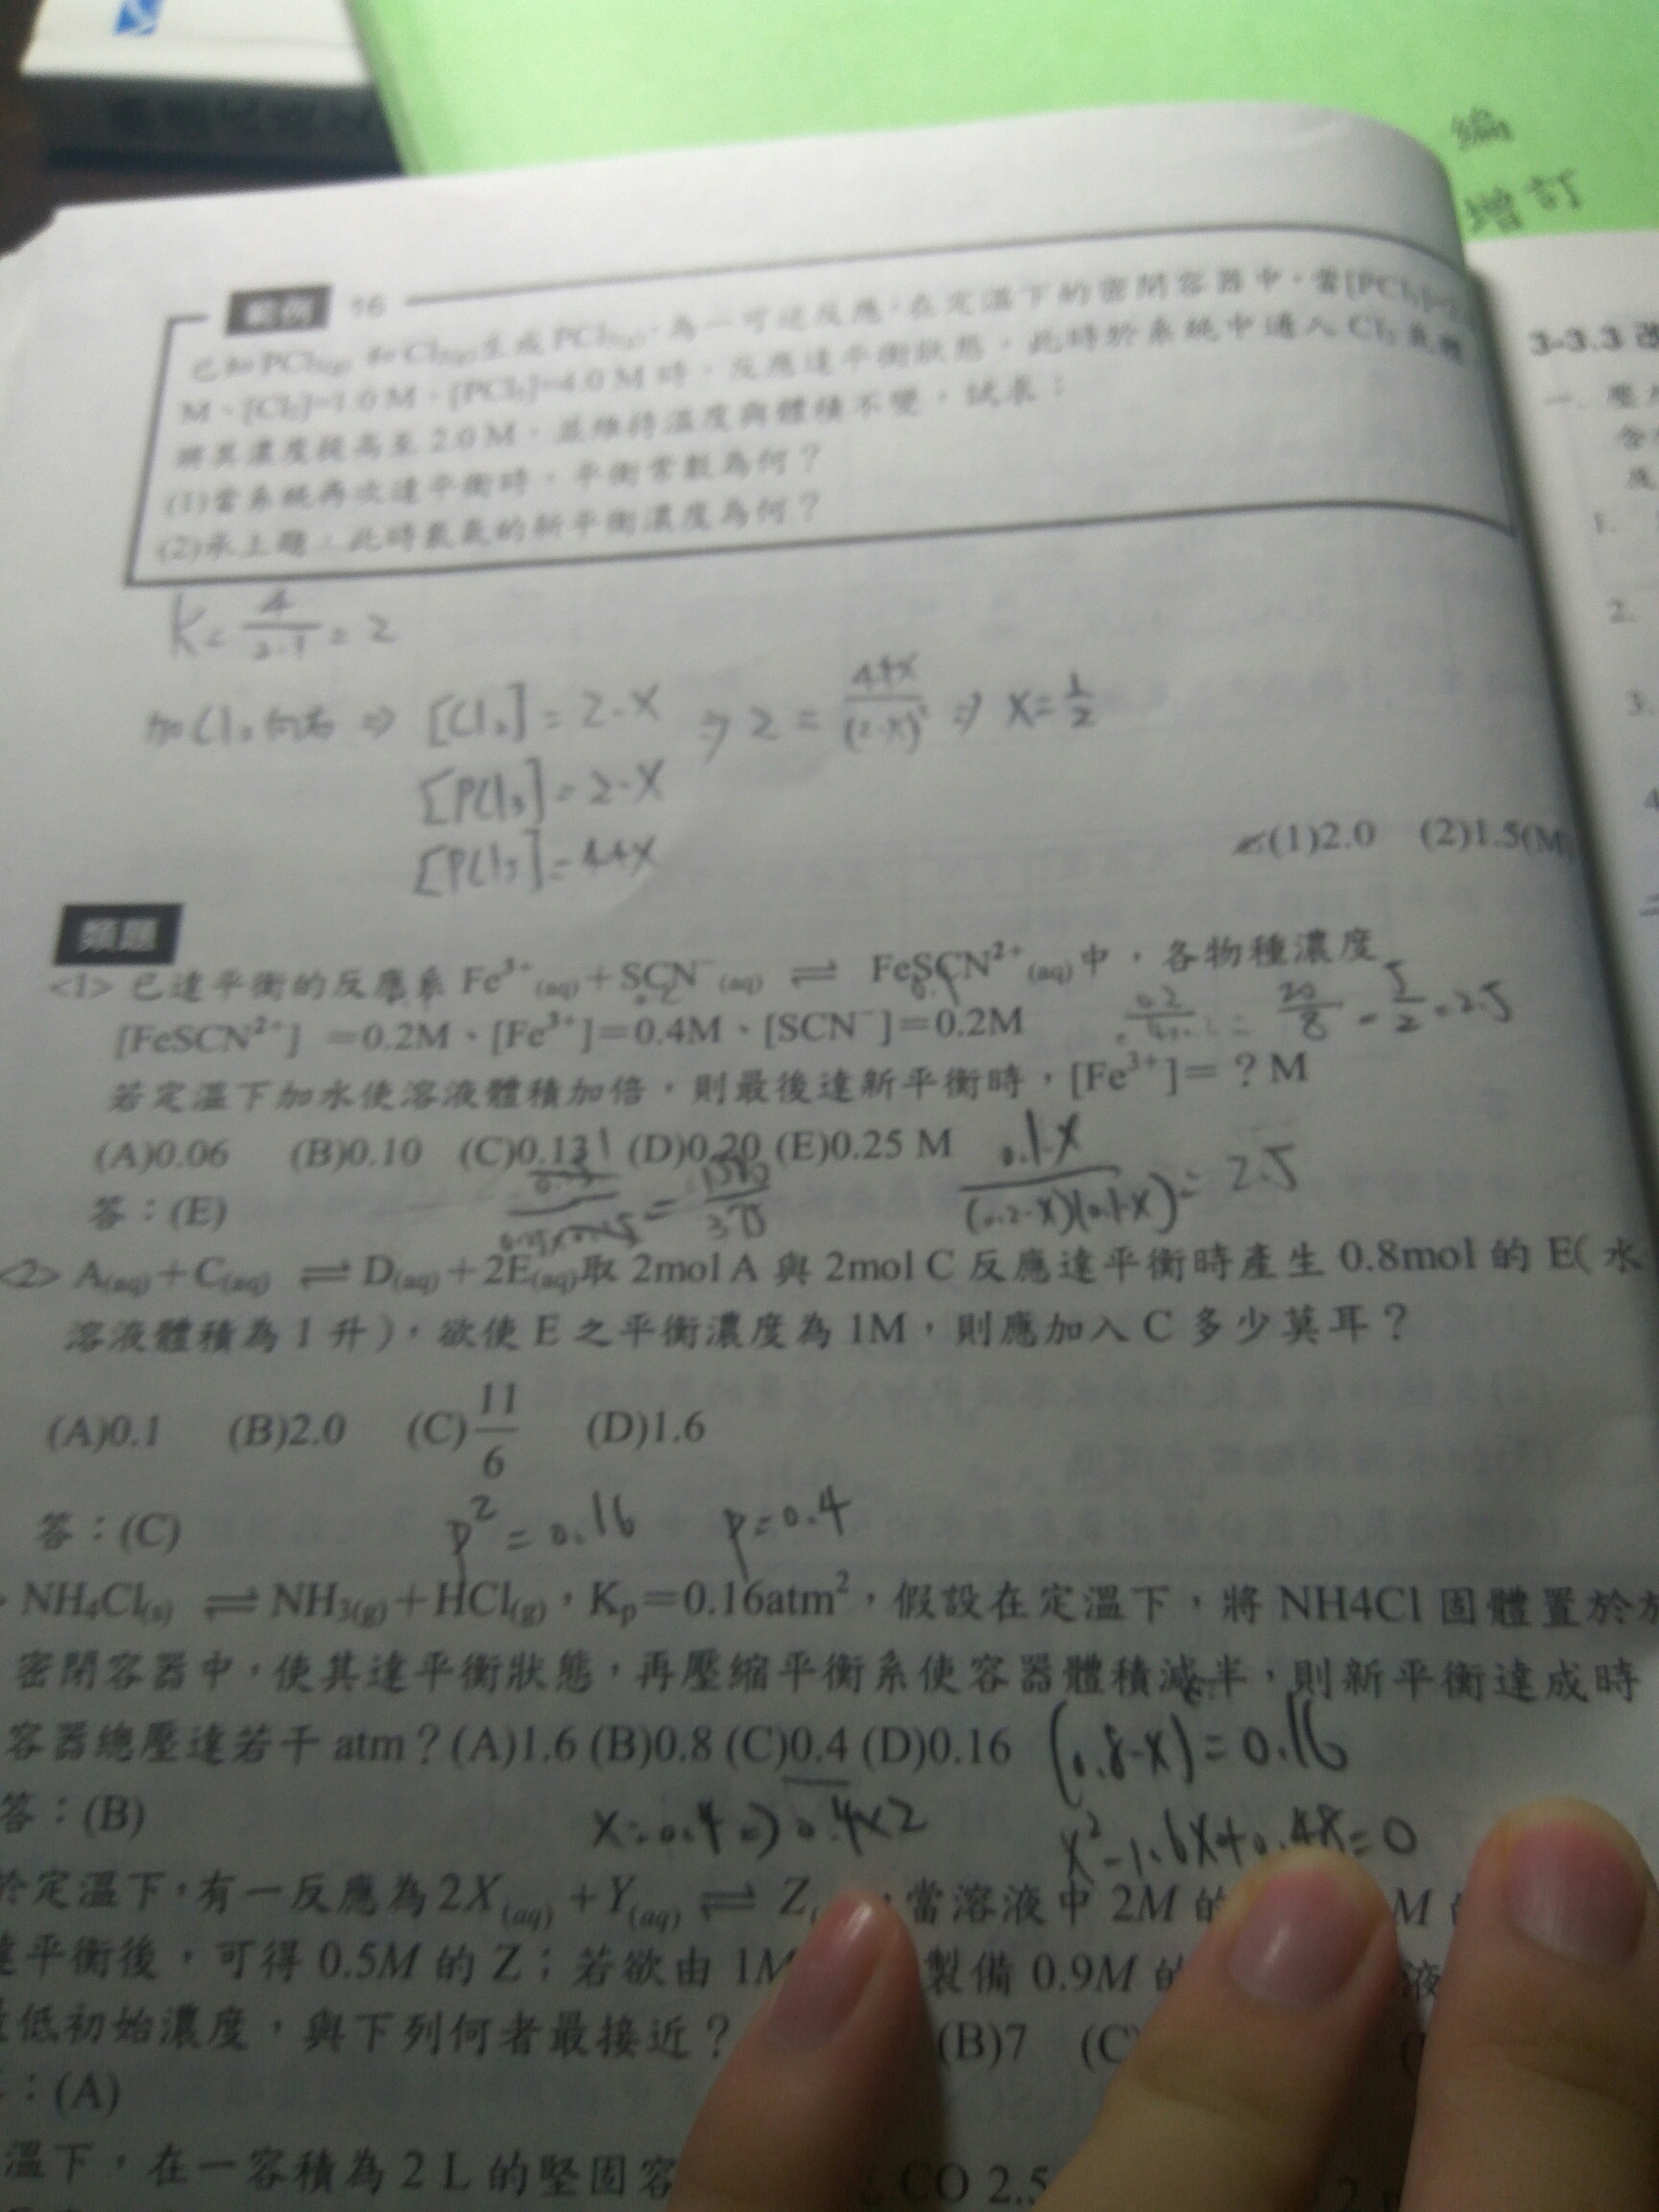 編
增訂
範例 16
已知 PCl₃(g) 和 Cl₂(g) 生成 PCl₅(g),為一可逆反應,在定溫下的密閉容器中,當[PCl₃]=
M、[Cl₂]=1.0 M、[PCl₅]=4.0 M 時,反應達平衡狀態,此時於系統中通入 Cl₂ 氣體
將其濃度提高至 2.0 M,並維持溫度與體積不變,試求:
(1)當系統再次達平衡時,平衡常數為何?
(2)承上題,此時氯氣的新平衡濃度為何?
3-3.3 改
一.
1.
2.
3.
K = 4/2·1 = 2
加Cl₂向右 ⇒ [Cl₂] = 2-X ⇒ 2 = 4+X/(2-X)² ⇒ X = 1/2
[PCl₃] = 2-X
[PCl₅] = 4+X
(1)2.0 (2)1.5(M)
類題
<1> 已達平衡的反應系 Fe³⁺(aq)+SCN⁻(aq) ⇌ FeSCN²⁺(aq)中,各物種濃度
[FeSCN²⁺] =0.2M、[Fe³⁺]=0.4M、[SCN⁻]=0.2M
20/8 = 5/2 = 2.5
若定溫下加水使溶液體積加倍,則最後達新平衡時,[Fe³⁺]=?M
(A)0.06 (B)0.10 (C)0.131 (D)0.20 (E)0.25 M
0.1-X/(0.2-X)(0.1-X) = 2.5
答:(E)
<2> A(aq)+C(aq) ⇌ D(aq)+2E(aq)取 2mol A 與 2mol C 反應達平衡時產生 0.8mol 的 E(水
溶液體積為 1 升),欲使 E 之平衡濃度為 1M,則應加入 C 多少莫耳?
(A)0.1 (B)2.0 (C)11/6 (D)1.6
答:(C)
p² = 0.16 p = 0.4
NH₄Cl(s) ⇌ NH₃(g)+HCl(g),Kp=0.16atm²,假設在定溫下,將 NH4Cl 固體置於
密閉容器中,使其達平衡狀態,再壓縮平衡系使容器體積減半,則新平衡達成時
容器總壓達若干 atm?(A)1.6 (B)0.8 (C)0.4 (D)0.16
(0.8-X) = 0.16
答:(B)
X=0.4 ⇒ 0.4×2
X²-1.6X+0.48=0
於定溫下,有一反應為 2X(aq)+Y(aq) ⇌ Z 當溶液中 2M 的 M
達平衡後,可得 0.5M 的 Z;若欲由 1M 製備 0.9M 的 液
低初始濃度,與下列何者最接近? (B)7 (C)
:(A)
溫下,在一容積為 2 L 的堅固容 CO 2.5